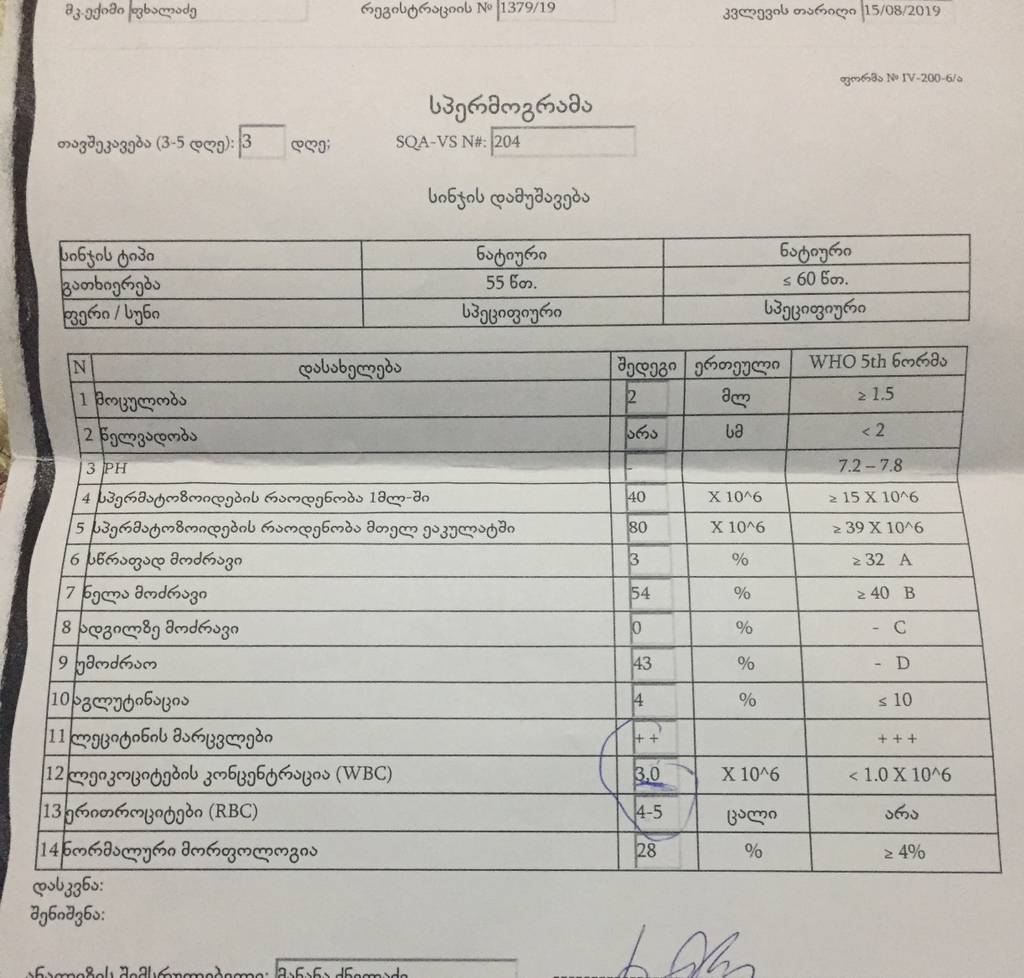 მკ.ექიმი ფხალაძე რეგისტრაციის № 1379/19 კვლევის თარიღი 15/08/2019
ფორმა № IV-200-6/ა
სპერმოგრამა
თავშეკავება (3-5 დღე): 3 დღე; SQA-VS N#: 204
სინჯის დამუშავება
სინჯის ტიპი ნატიური ნატიური
გათხიერება 55 წთ. ≤ 60 წთ.
ფერი / სუნი სპეციფიური სპეციფიური
N დასახელება შედეგი ერთეული WHO 5th ნორმა
1 მოცულობა 2 მლ ≥ 1.5
2 წელვადობა არა სმ < 2
3 PH - 7.2 – 7.8
4 სპერმატოზოიდების რაოდენობა 1მლ-ში 40 X 10^6 ≥ 15 X 10^6
5 სპერმატოზოიდების რაოდენობა მთელ ეაკულატში 80 X 10^6 ≥ 39 X 10^6
6 სწრაფად მოძრავი 3 % ≥ 32 A
7 ნელა მოძრავი 54 % ≥ 40 B
8 ადგილზე მოძრავი 0 % - C
9 უმოძრაო 43 % - D
10 აგლუტინაცია 4 % ≤ 10
11 ლეციტინის მარცვლები + + + + +
12 ლეიკოციტების კონცენტრაცია (WBC) 3,0 X 10^6 < 1.0 X 10^6
13 ერითროციტები (RBC) 4-5 ცალი არა
14 ნორმალური მორფოლოგია 28 % ≥ 4%
დასკვნა:
შენიშვნა:
ანალიზის შემსრულებელი: მანანა ქნელაძე